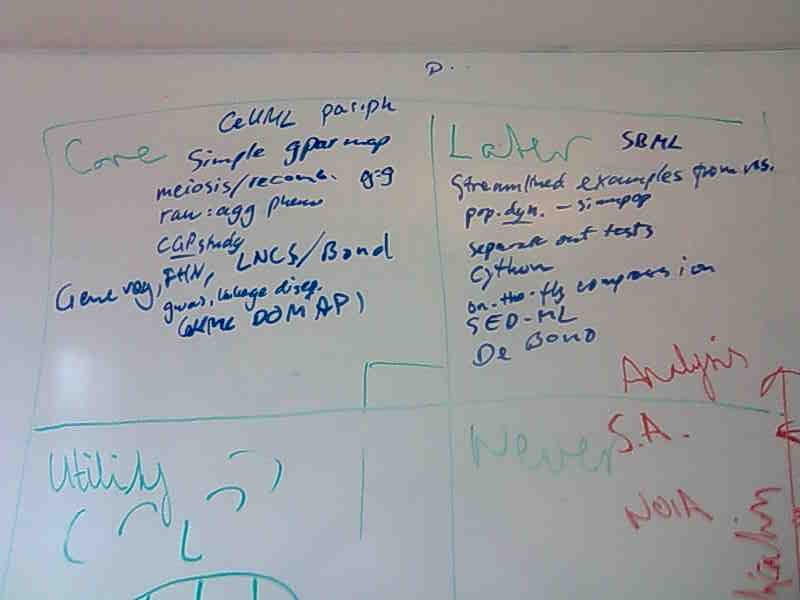 Core
CellML par.ph
Simple gpar map
meiosis/recomb. g:g
raw:agg pheno
CGPstudy
Gene reg, FHN, LNCS/Bond
gwas, linkage diseq.
CellML DOM API
Later SBML
Streamlined examples from ms.
pop.dyn. - simupop
separate out tests
Cython
on-the-fly compression
SED-ML
De Bono
Utility
Never
Analysis
S.A.
NOIA